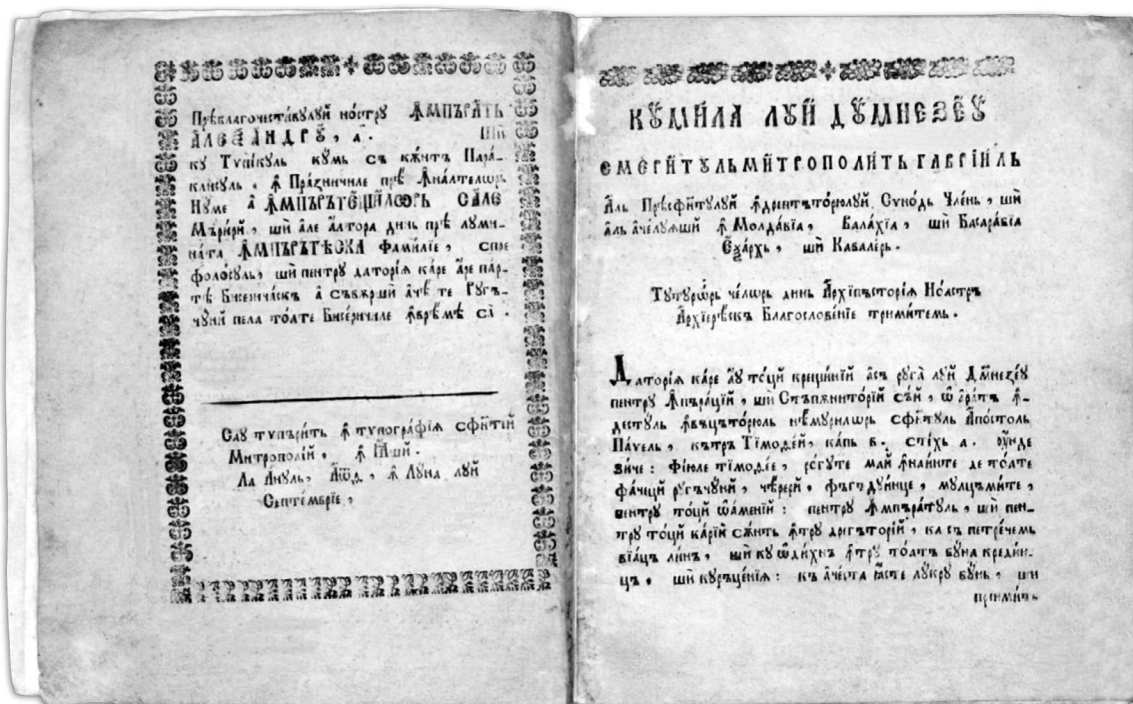 Прѣблагочестивулуй нострꙋ Ꙟмпъратъ
Алеѯандрꙋ, а҃. Ши
ку Тупикуль кумь съ кѫнтъ Пара-
клисуль, ꙟ Празничиле прѣ ꙟналтелѡрь
Нуме а Ꙟмпърътещилѡрь Сале
Мърири, ши але алтора динь прѣ луми-
ната Ꙟмпърътѣска Фамилїе, спре
фолосуль, ши пентру даторїѧ каре аре пар-
тѣ Бисеричаскъ а съвърши ачѣ те Ругъ-
чуни пела тоате Бисеричиле ꙟврѣмѣ са.
Сау тупърить ꙟ тупографїѧ сфинтей
Митрополїй, ꙟ Іаши.
Ла Ануль, ҂аѡд, ꙟ Луна луй
Септемврїе,
КꙊМИЛА ЛУЙ ДꙊМНЕЗЕꙊ
СМЕРИТУЛЬ МИТРОПОЛИТЬ ГАВРІИЛЬ
Аль Прѣсфинтулуй ꙟдрептъторюлуй Сѵнодь Члень, ши
аль ачелуѧши ꙟ Молдавїа, Валахїа, ши Басаравїа
Еѯархь, ши Кавалерь.
Тутурѡрь челѡрь динь Архїпъсторїѧ Ноастръ
Архїерѣскъ Благословенїе тримитемь.
Даторїѧ каре ау тоци крещинїй асъ руга луй Дⷨнеѕеу
пентру Ꙟпърацїй, ши Стъпѫниторїй съй, ѡ аратъ ꙟ-
дестуль ꙟвъцъторюль нѣмурилѡрь сфинтуль Апостоль
Павель, кътръ Тїмоѳей, капь в. стїхь а. унде
зиче: Фїюле тїмоѳее, рогуте май ꙟнаинте де тоате
фачеци ругъчуни, чѣрери, фъгъдуинце, мулцъмите,
пентру тоци ѡаменїй: пентру Ꙟмпъратуль, ши пен-
тру тоци карїй сѫнть ꙟтру дрегъторїй, ка съ петречемь
вїацъ линъ, ши ку ѡдихнъ ꙟтру тоатъ буна кредин-
цъ, ши куръценїѧ: къ ачѣста ꙗсте лукру бунь, ши
приимить